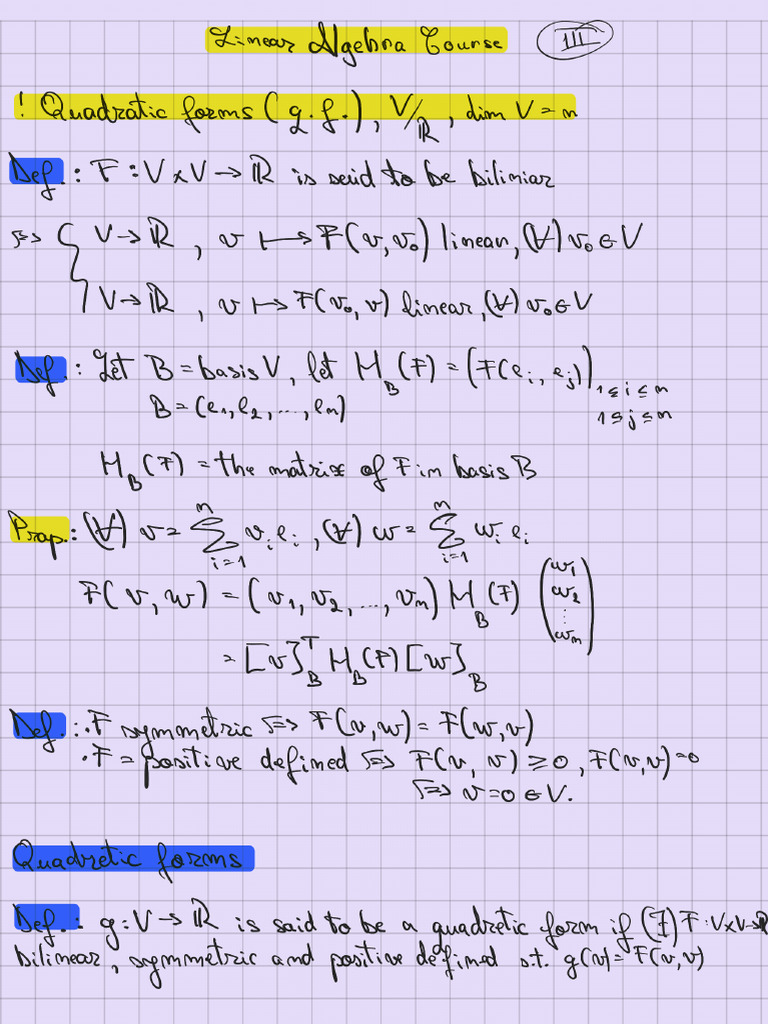 Linear Algebra Course III
! Quadratic forms (g.f.), V/ℝ, dim V = n
Def.: F: V×V → ℝ is said to be biliniar
⟺ { V → ℝ, v ⟼ F(v, v₀) linear, (∀) v₀ ∈ V
V → ℝ, v ⟼ F(v₀, v) linear, (∀) v₀ ∈ V
Def.: Let B = basis V, let M_B(F) = (F(e_i, e_j)) 1≤i≤n
B = (e₁, e₂, ..., e_n) 1≤j≤n
M_B(F) = the matrix of F in basis B
Prop.: (∀) v = ∑_{i=1}^{n} v_i e_i, (∀) w = ∑_{i=1}^{n} w_i e_i
F(v, w) = (v₁, v₂, ..., v_n) M_B(F) (w₁ w₂ ⋮ w_n)
= [v]_B^T M_B(F) [w]_B
Def.: · F symmetric ⟺ F(v, w) = F(w, v)
· F = positive defined ⟺ F(v, v) ≥ 0, F(v, v) = 0
⟺ v = 0 ∈ V.
Quadretic forms
Def.: g: V → ℝ is said to be a quadretic form if (∃) F: V×V→ℝ
bilinear, symmetric and positive defined s.t. g(v) = F(v, v)